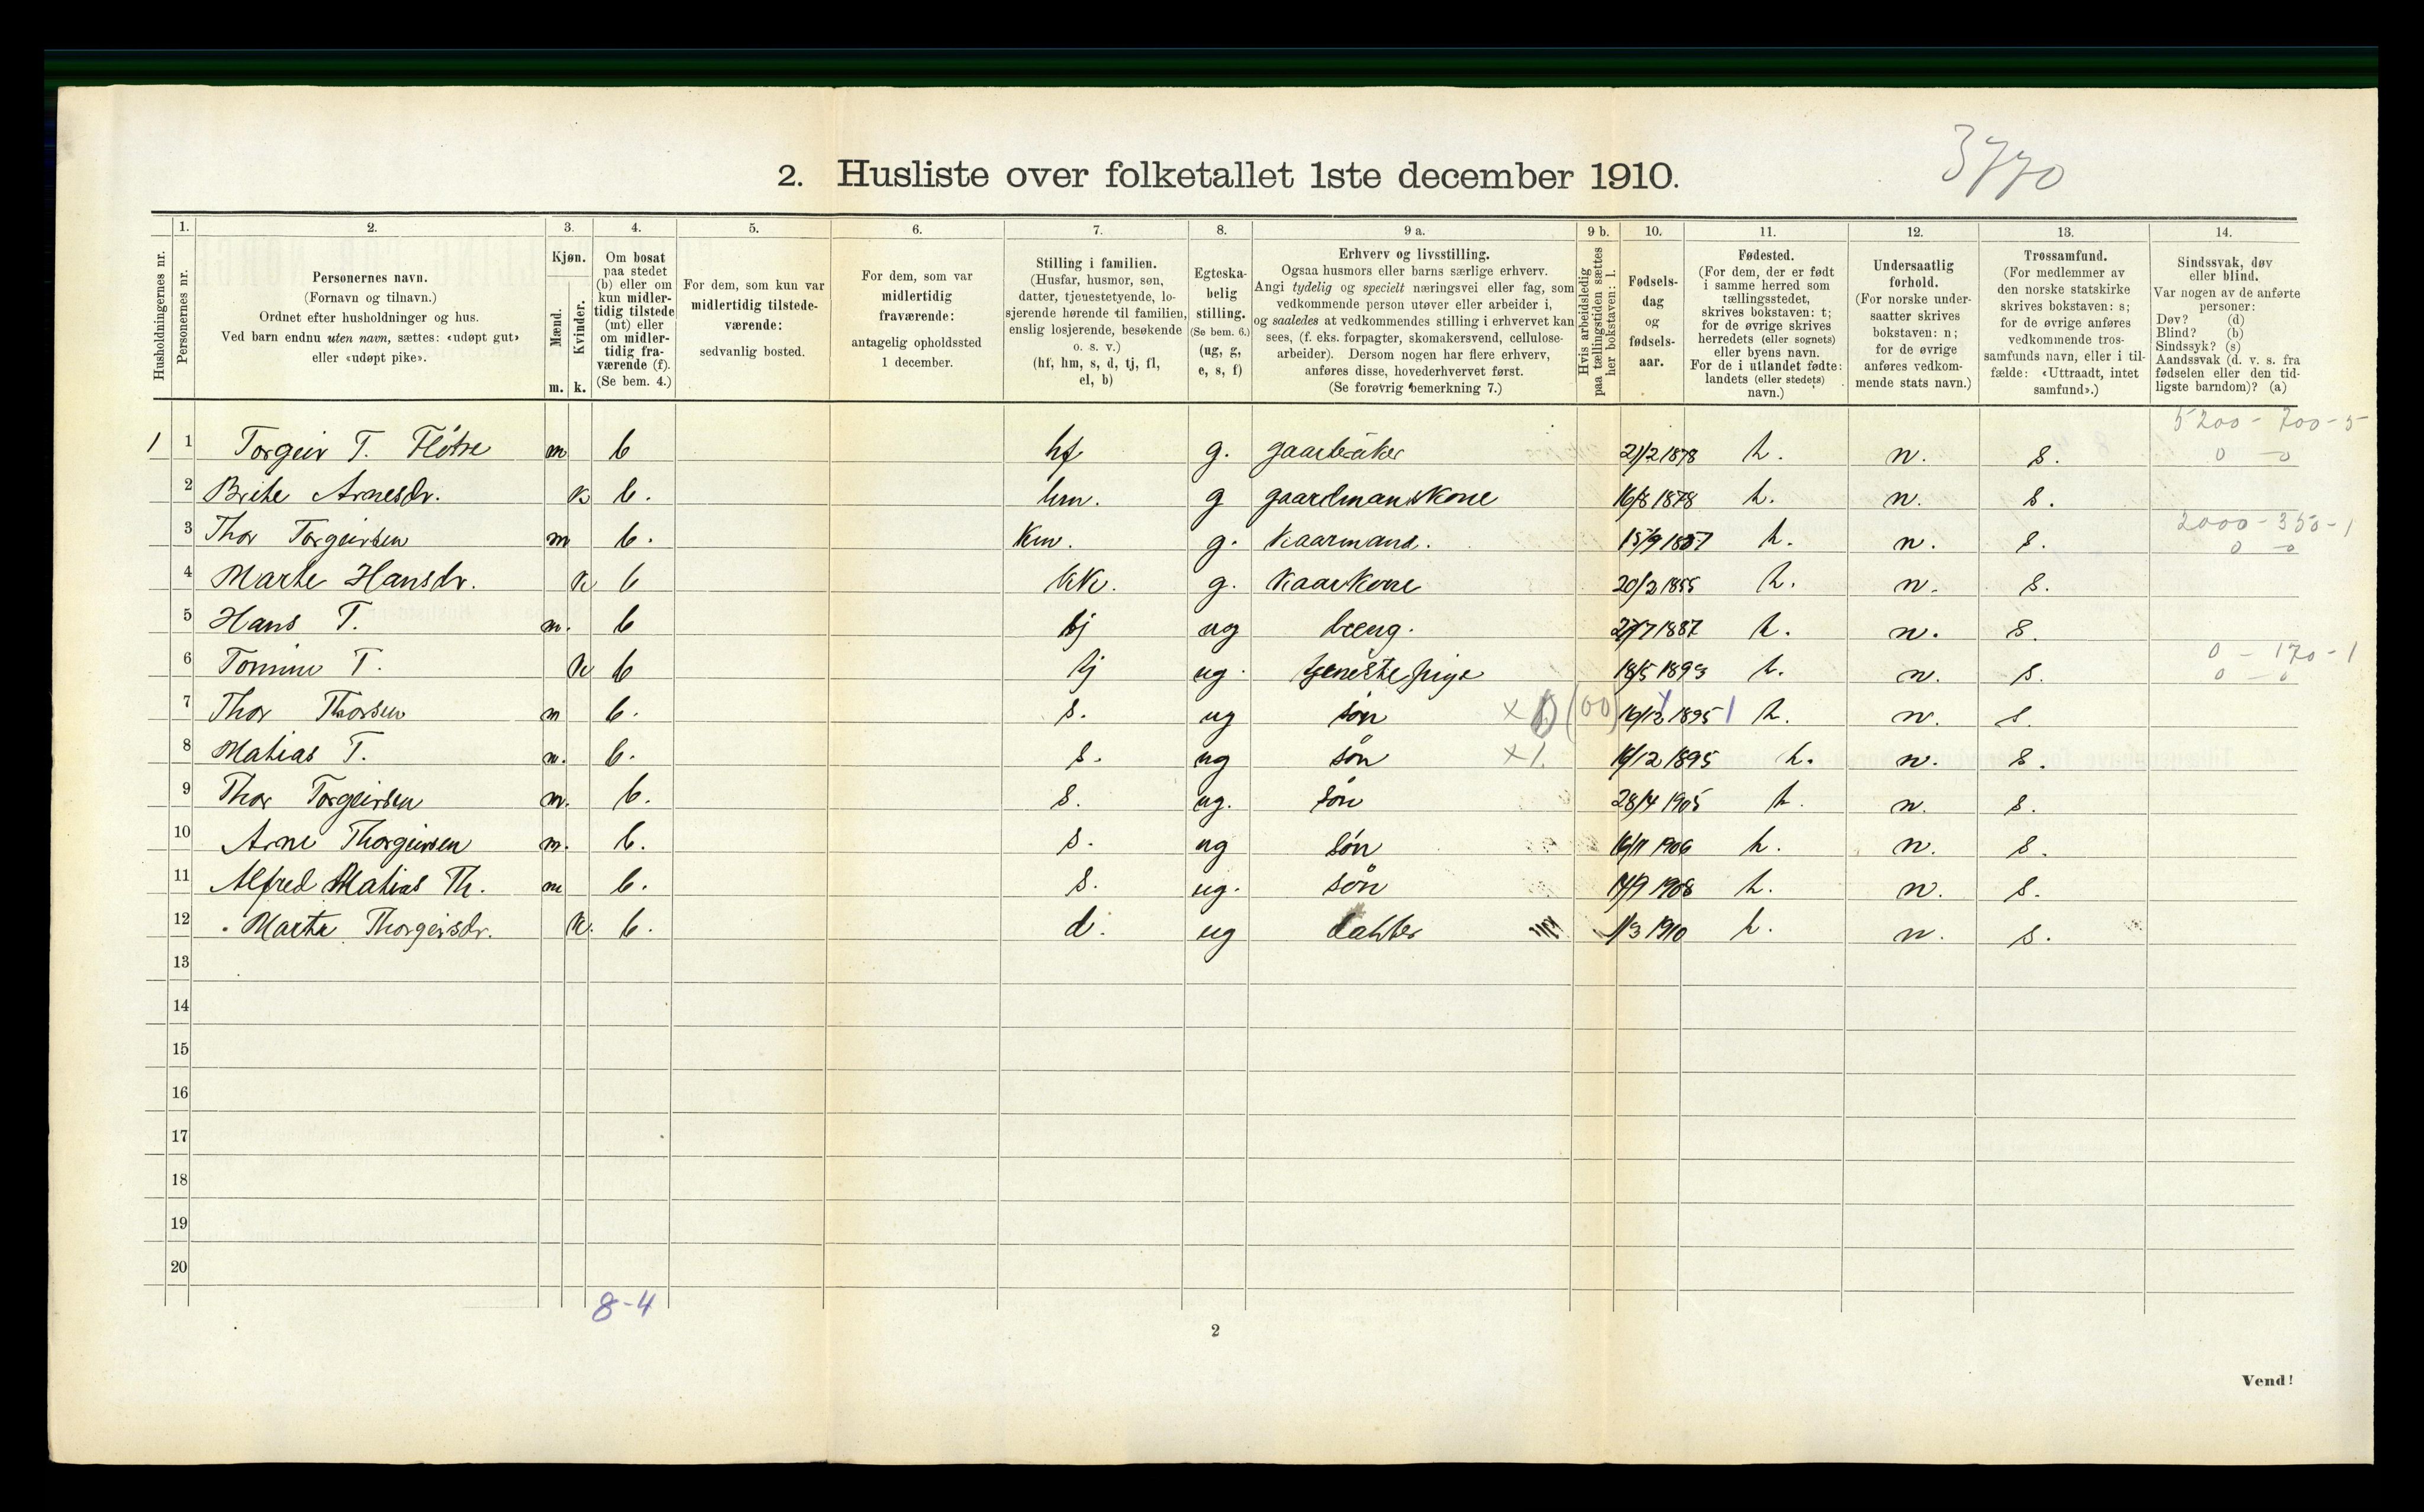 3770
2. Husliste over folketallet 1ste december 1910.
Husholdningernes nr.
1. Personernes nr.
2. Personernes navn.
(Fornavn og tilnavn.)
Ordnet efter husholdninger og hus.
Ved barn endnu uten navn, sættes: «udøpt gut»
eller «udøpt pike».
3. Kjøn.
Mænd. m.
Kvinder. k.
4. Om bosat
paa stedet
(b) eller om
kun midler-
tidig tilstede
(mt) eller
om midler-
tidig fra-
værende (f).
(Se bem. 4.)
5. For dem, som kun var
midlertidig tilstede-
værende:
sedvanlig bosted.
6. For dem, som var
midlertidig
fraværende:
antagelig opholdssted
1 december.
7. Stilling i familien.
(Husfar, husmor, søn,
datter, tjenestetyende, lo-
sjerende hørende til familien,
enslig losjerende, besøkende
o. s. v.)
(hf, hm, s, d, tj, fl,
el, b)
8. Egteska-
belig
stilling.
(Se bem. 6.)
(ug, g,
e, s, f)
9 a. Erhverv og livsstilling.
Ogsaa husmors eller barns særlige erhverv.
Angi tydelig og specielt næringsvei eller fag, som
vedkommende person utøver eller arbeider i,
og saaledes at vedkommendes stilling i erhvervet kan
sees, (f. eks. forpagter, skomakersvend, cellulose-
arbeider). Dersom nogen har flere erhverv,
anføres disse, hovederhvervet først.
(Se forøvrig bemerkning 7.)
9 b. Hvis arbeidsledig
paa tællingstiden sættes
her bokstaven: l.
10. Fødsels-
dag
og
fødsels-
aar.
11. Fødested.
(For dem, der er født
i samme herred som
tællingsstedet,
skrives bokstaven: t;
for de øvrige skrives
herredets (eller sognets)
eller byens navn.
For de i utlandet fødte:
landets (eller stedets)
navn.)
12. Undersaatlig
forhold.
(For norske under-
saatter skrives
bokstaven: n;
for de øvrige
anføres vedkom-
mende stats navn.)
13. Trossamfund.
(For medlemmer av
den norske statskirke
skrives bokstaven: s;
for de øvrige anføres
vedkommende tros-
samfunds navn, eller i til-
fælde: «Uttraadt, intet
samfund».)
14. Sindssvak, døv
eller blind.
Var nogen av de anførte
personer:
Døv? (d)
Blind? (b)
Sindssyk? (s)
Aandssvak (d. v. s. fra
fødselen eller den tid-
ligste barndom)? (a)
5200 - 700 - 5
1 1 Torgeir T. Fløtre m b hf g. 21/2 1878 t. n. s. 0 - 0
2 Brite Arnesdr. k b. hm. g gaardmandskone 16/8 1878 t. n. s.
2000 - 350 - 1
3 Thor Torgeirsen m b. km. g. kaarmand. 15/9 t. n. s. 0 - 0
4 Marte Hansdr. k b kk. g. kaarkone 20/2 1855 t. n. s.
5 Hans T. m. b tj ug dreng. 27/7 1887 t. n. s.
0 - 170 - 1
6 T. k b tj ug. tjenestepige 18/5 1893 t. n. s. 0 - 0
7 Thor Thorsen m b. s. ug søn x (00) 16/12 1895 t. n. s.
8 Matias T. m. b. s. ug søn x 1. 16/12 1895 t. n. s.
9 Thor Torgeirsen m. b. s. ug. søn 28/4 1905 t. n. s.
10 Arne Thorgeirsen m. b. s. ug søn 16/11 1906 t. n. s.
11 Alfred Matias Th. m b. s. ug. søn 14/9 1908 t. n. s.
12 Marta Thorgeirsdr. k. b. d. ug datter 1/3 1910 t. n. s.
13
14
15
16
17
18
19
20
8-4
2
Vend!